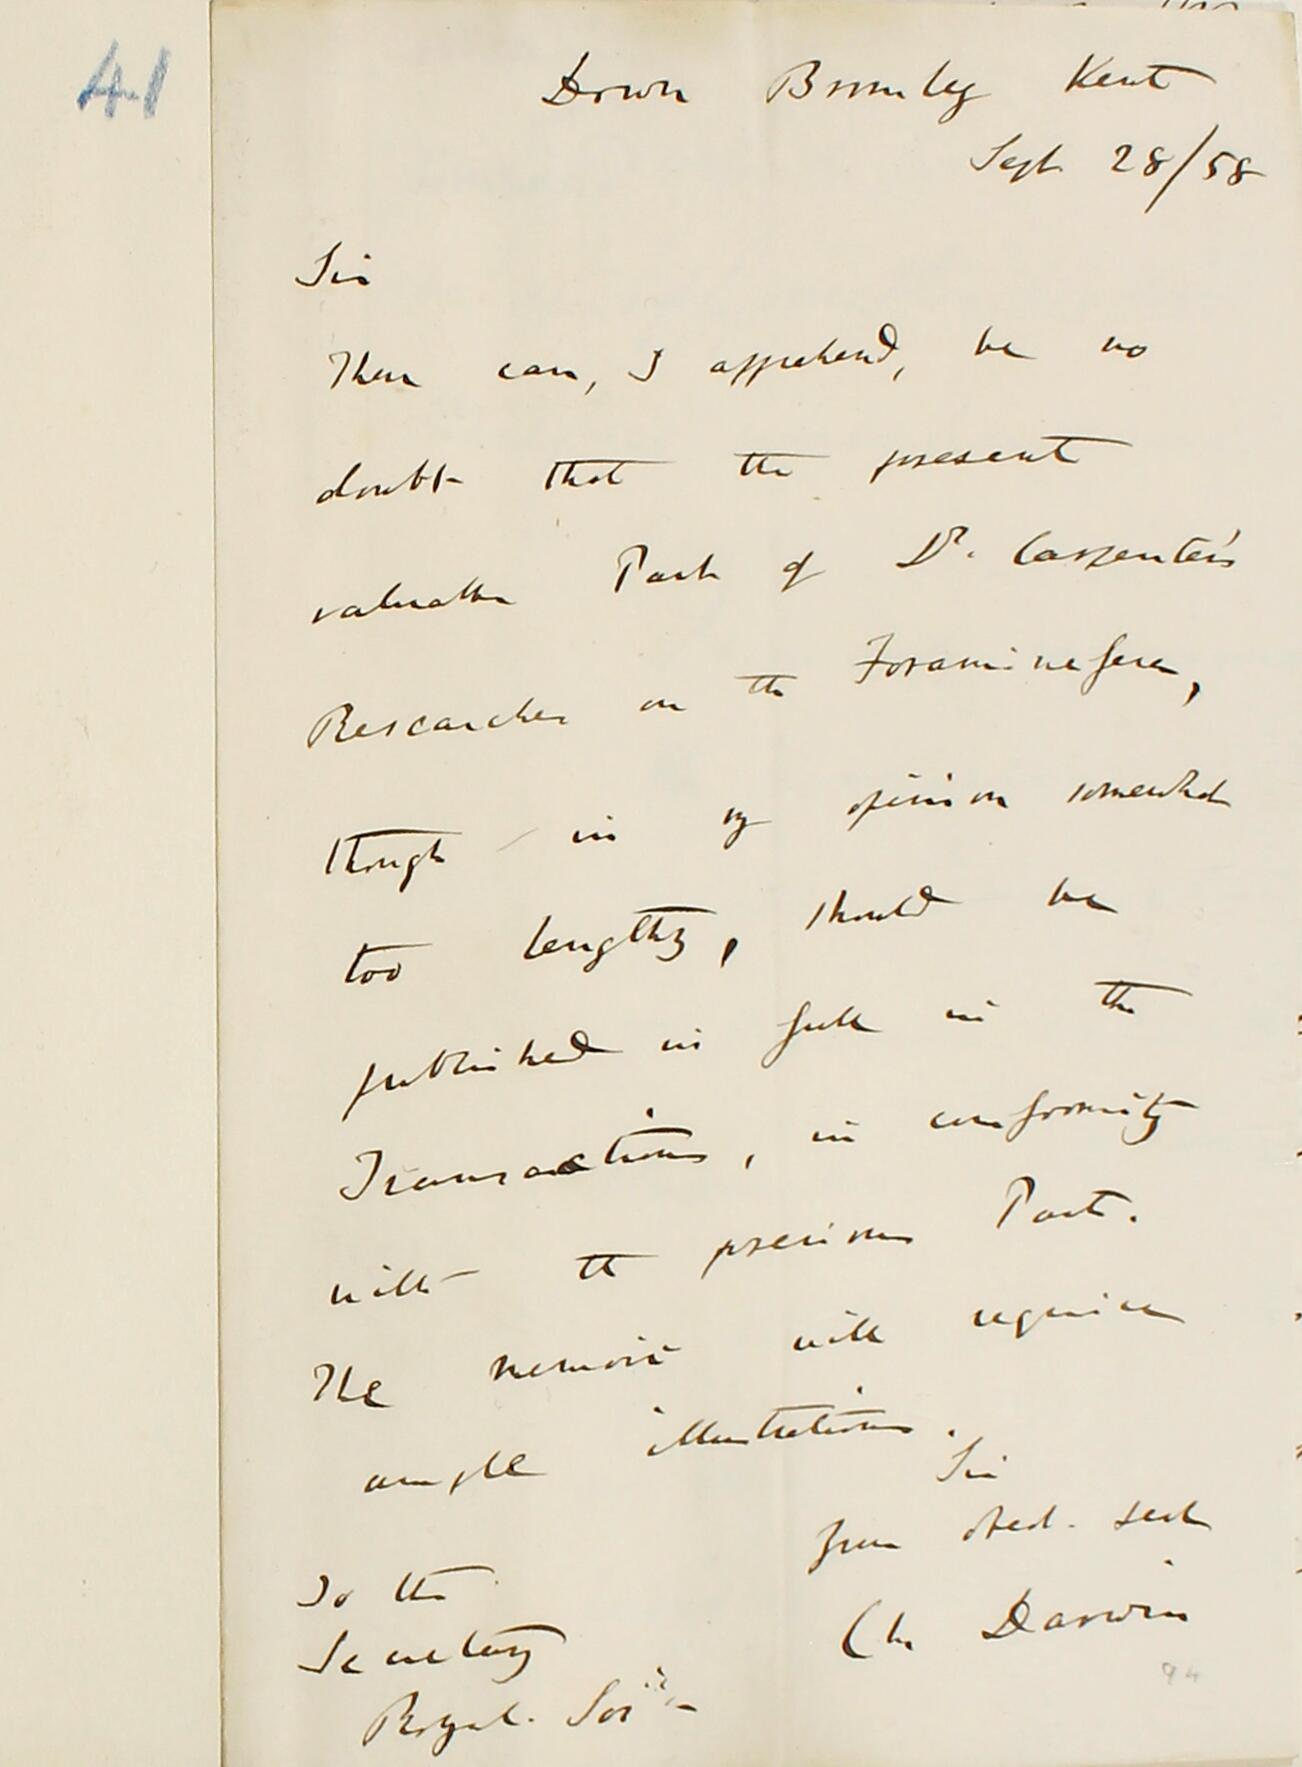 41
Down Bromley Kent
Sept. 28/58
Sir
There can, I apprehend, be no
doubt that the present
valuable Part of Dr. Carpenter's
Researches on the Foraminefera,
though in my opinion somewhat
too lengthy, should be
published in full in the
Transactions, in conformity
with the previous Part.
The memoir will require
ample illustrations.
Sir
Your obed. servt
Ch Darwin
To the
Secretary
Royal. Socy
94